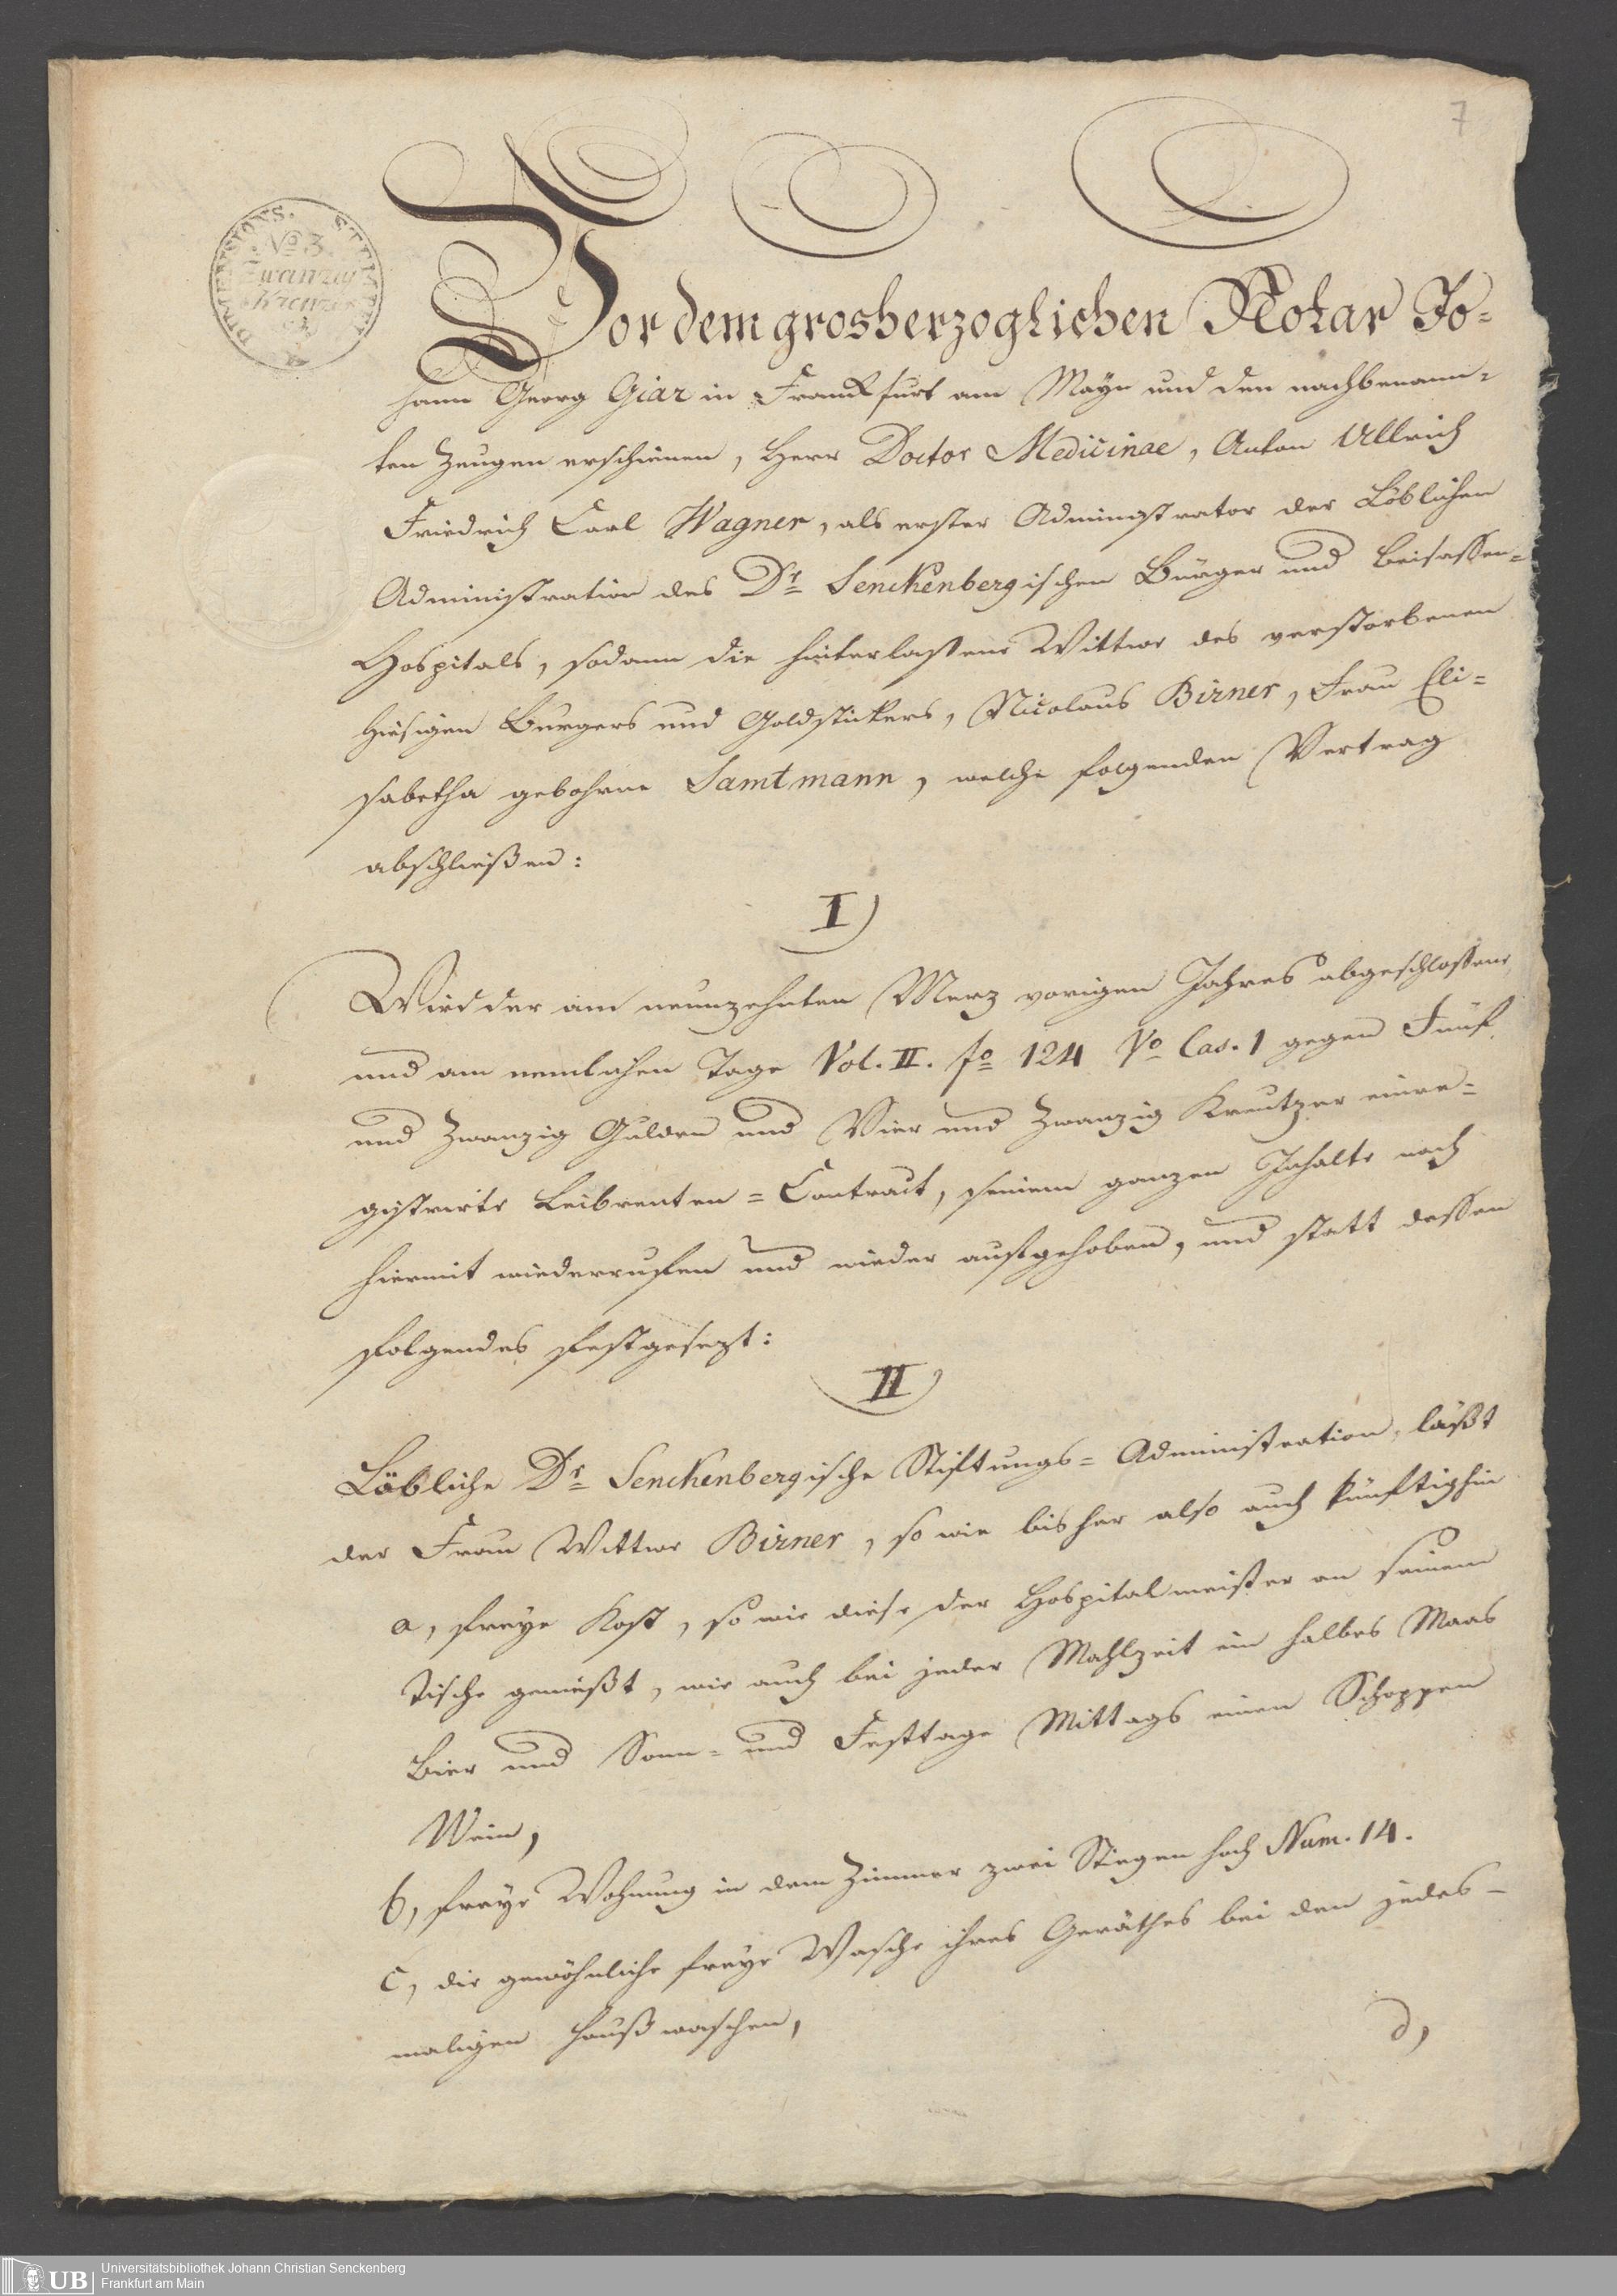 7
DIMENSIONS. STEMPEL
No 3.
Zwanzig
Kreuzer
Vor dem grosherzoglichen Notar Jo-
hann Georg Giar in Franckfurt am Mayn und den nachbenann-
ten Zeugen erschienen, Herr Doctor Medicinae, Anton Ullrich
Friedrich Carl Wagner, als erster Administrator der Löblichen
Administration des Dr Senckenbergischen Bürger und Beisassen-
Hospitals, sodann die hinterlassene Wittwe des verstorbenen
hiesigen Burgers und Goldstickers, Nicolaus Birner, Frau Eli-
sabetha gebohrne Samtmann, welche folgenden Vertrag
abschließen:
I)
Wird der am neunzehnten Merz vorigen Jahres abgeschlossene,
und am nemlichen Tage Vol. II. fo 124 Vo Cas. 1 gegen Fünf
und Zwanzig Gulden und Vier und Zwanzig Kreutzer einre-
gistrirte Leibrenten-Contract, seinem ganzen Inhalte nach
hiermit wiederrufen und wieder aufgehoben, und statt dessen
folgendes festgesezt:
II)
Löbliche Dr Senckenbergische Stiftungs-Administration, läßt
der Frau Wittwe Birner, so wie bisher also auch künftighin
a, freye Kost, so wie diese der Hospitalmeister an seinem
Tische genießt, wie auch bei jeder Mahlzeit ein halbes Maas
Bier und Sonn- und Festtage Mittags einen Schoppen
Wein,
b, freye Wohnung in dem Zimmer zwei Stiegen hoch Num. 14.
c, die gewöhnliche freye Wasche ihres Geräthes bei den jedes-
maligen Hauß waschen,
d,
UB
Universitätsbibliothek Johann Christian Senckenberg
Frankfurt am Main